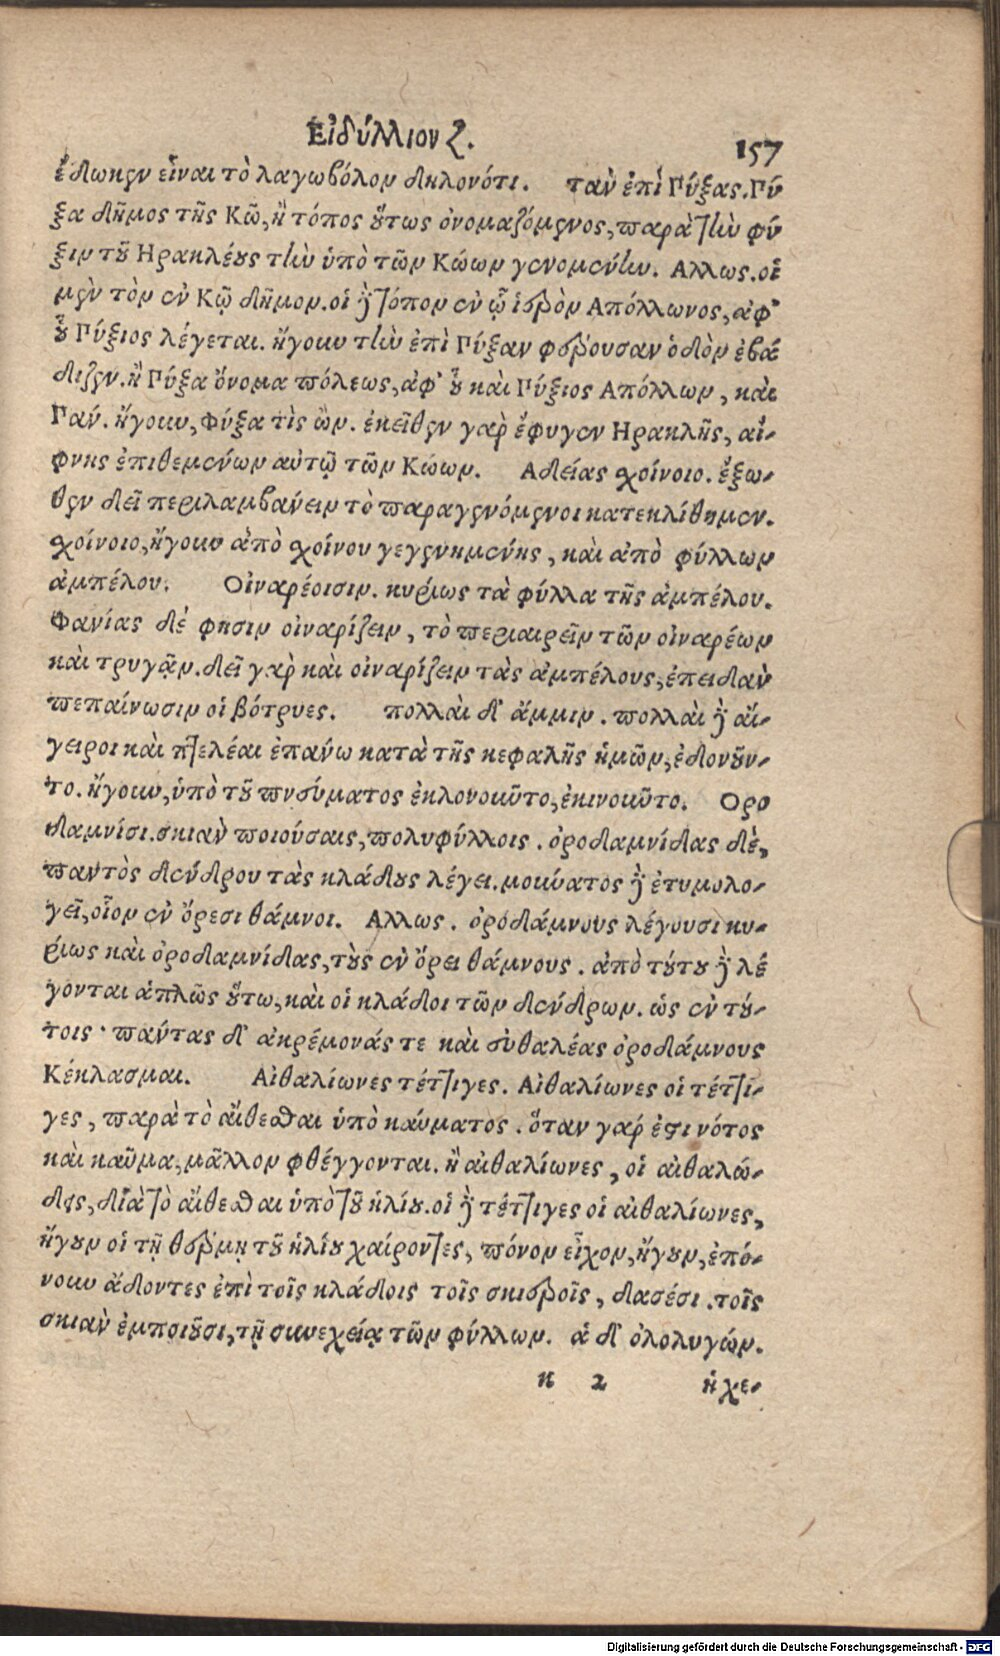 Εἰδύλλιον ζ.
157
ἔδωκεν εἶναι τὸ λαγωβόλον δηλονότι. ταὺ ἐπὶ Γύξας. Γύ
ξα δῆμος τῆς Κῶ, ἢ τόπος οὕτως ὀνομαζόμενος, παρὰ τὴν φύ
ξιν τοῦ Ηρακλέους τὴν ὑπὸ τῶν Κώων γενομένην. Αλλως. οἱ
μὲν τὸν ἐν Κῷ δῆμον. οἱ δὲ τόπον ἐν ᾧ ἱερὸν Απόλλωνος, ἀφ'
οὗ Γύξιος λέγεται. ἤγουν τὴν ἐπὶ Γύξαν φέρουσαν ὁδὸν ἐβά
διζεν. ἢ Γύξα ὄνομα πόλεως, ἀφ' οὗ καὶ Γύξιος Απόλλων, καὶ
Γαύ. ἤγουν, Φύξα τὶς ὢν. ἐκεῖθεν γὰρ ἔφυγεν Ηρακλῆς, αἰ-
φνης ἐπιθεμένων αὐτῷ τῶν Κώων. Αδείας χοίνοιο. ἔξω-
θεν δεῖ περιλαμβάνειν τὸ παραγενόμενοι κατεκλίθημεν.
χοίνοιο, ἤγουν ἀπὸ χοίνου γεγενημένης, καὶ ἀπὸ φύλλων
ἀμπέλου. Οἰναρέοισιν. κυρίως τὰ φύλλα τῆς ἀμπέλου.
Φανίας δέ φησιν οἰναρίζειν, τὸ περιαιρεῖν τῶν οἰναρέων
καὶ τρυγᾷν. δεῖ γὰρ καὶ οἰναρίζειν τὰς ἀμπέλους, ἐπειδὰν
πεπαίνωσιν οἱ βότρυες. πολλαὶ δ' ἄμμιν. πολλαὶ δὲ αἴ-
γειροι καὶ πτελέαι ἐπάνω κατὰ τῆς κεφαλῆς ἡμῶν, ἐδονοῦν-
το. ἤγουν, ὑπὸ τοῦ πνεύματος ἐκλονοῦντο, ἐκινοῦντο. Ορο
δαμνίσι. σκιὰν ποιούσαις, πολυφύλλοις. ὀροδαμνίδας δὲ,
παντὸς δένδρου τὰς κλάδους λέγει. μονύατος δὲ ἐτυμολο-
γεῖ, οἷον ἐν ὄρεσι θάμνοι. Αλλως. ὀροδάμνους λέγουσι κυ-
ρίως καὶ ὀροδαμνίδας, τοὺς ἐν ὄρει θάμνους. ἀπὸ τούτου δὲ λέ
γονται ἁπλῶς οὕτω, καὶ οἱ κλάδοι τῶν δένδρων. ὡς ἐν τού-
τοις· παύτας δ' ἀκρέμονάς τε καὶ εὐθαλέας ὀροδάμνους
Κέκλασμαι. Αἰθαλίωνες τέττιγες. Αἰθαλίωνες οἱ τέττι-
γες, παρὰ τὸ αἴθεσθαι ὑπὸ καύματος. ὅταν γάρ ἐστι νότος
καὶ καῦμα, μᾶλλον φθέγγονται. ἢ αἰθαλίωνες, οἱ αἰθαλώ-
δεις, διὰ τὸ αἴθεσθαι ὑπὸ τοῦ ἡλίου. οἱ δὲ τέττιγες οἱ αἰθαλίωνες,
ἤγουν οἱ τῇ θέρμῃ τοῦ ἡλίου χαίροντες, πόνον εἶχον, ἤγουν, ἐπό-
νουν ᾄδοντες ἐπὶ τοῖς κλάδοις τοῖς σκιεροῖς, δασέσι. τοῖς
σκιὰν ἐμποιοῦσι, τῇ συνεχείᾳ τῶν φύλλων. ἁ δ' ὀλολυγών.
κ 2 ἠχε-
Digitalisierung gefördert durch die Deutsche Forschungsgemeinschaft - DFG